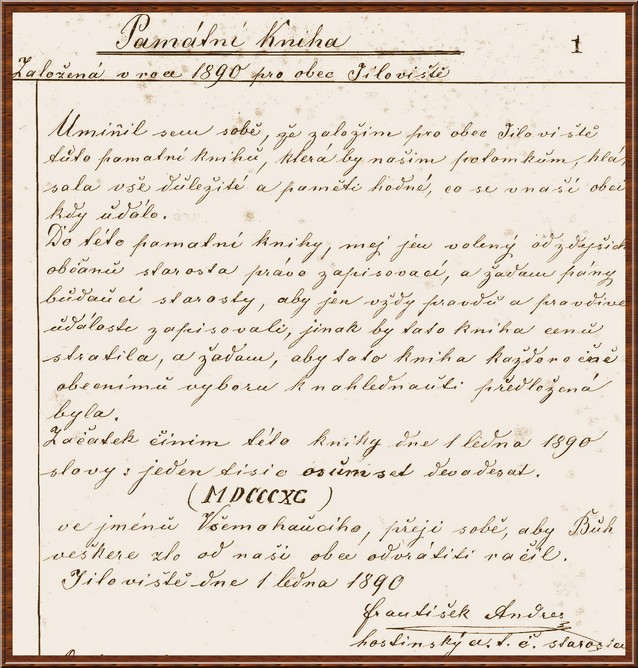 Památní Kniha
1
Založená v roce 1890 pro obec Jíloviště
Umíňil sem sobě, že založím pro obec Jíloviště
tůto pamatní knihů, která by našim potomkům, hlá,
sala vše důležité a paměti hodné, co se v naší obci
kdy událo.
Do této pamatní knihy, mej jen volený od zdyších
občanů starosta právo zapisovací, a žadam pány
bůdaucí starosty, aby jen vždy pravdů a pravdivé
události zapisovali, jinak by tato kniha cenů
stratila, a žadam, aby tato kniha každoročně
obecnímů vyborů k nahlednauti předložená
byla.
Začatek činim této knihy dne 1 ledna 1890
slovy: jeden tisic osům set devadesat.
(MDCCCXC)
ve jménů Všemohaucího, přeji sobě, aby Bůh
veškere zlo od naší obce odvrátiti račil.
Jíloviště dne 1 ledna 1890
František Andres
hostinský a. t. č. starosta